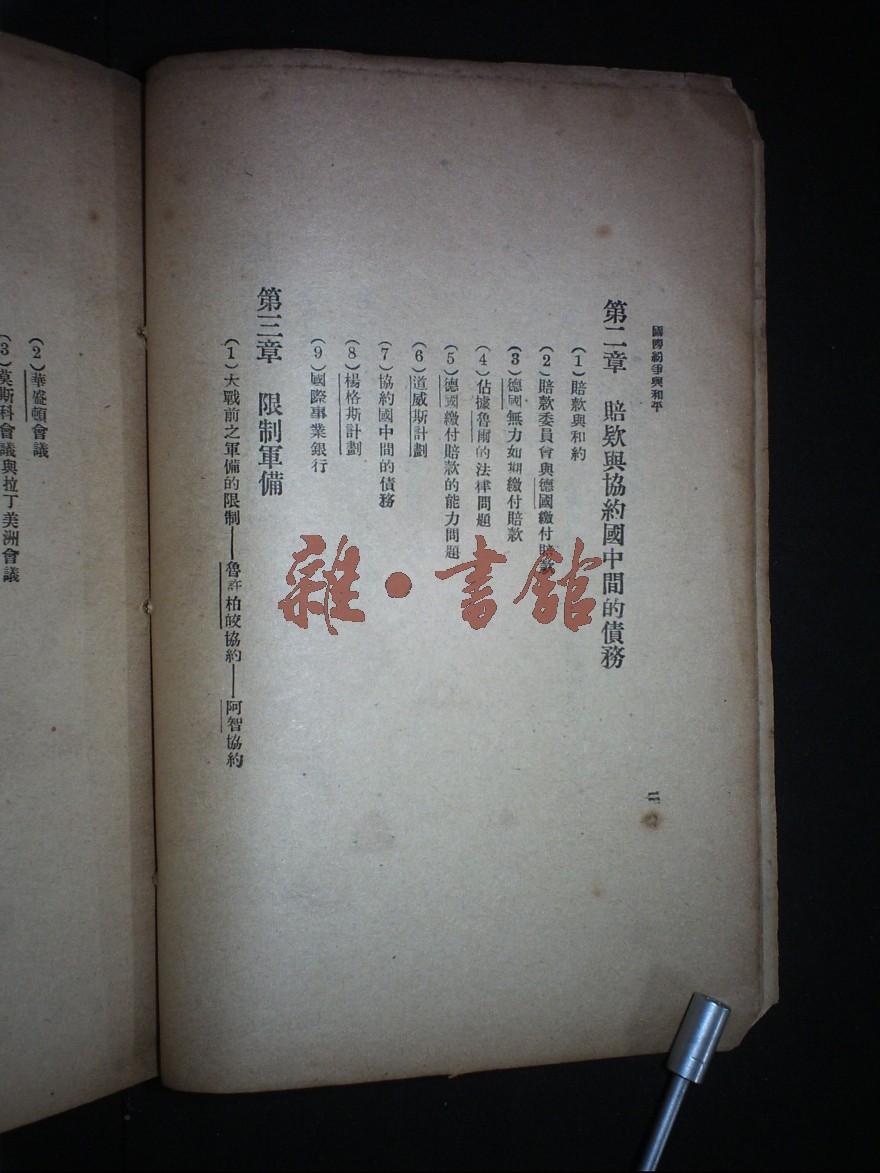 國際紛爭與和平
二
第二章　賠欵與協約國中間的債務
（1）賠款與和約
（2）賠款委員會與德國繳付賠款
（3）德國無力如期繳付賠款
（4）佔據魯爾的法律問題
（5）德國繳付賠款的能力問題
（6）道威斯計劃
（7）協約國中間的債務
（8）楊格斯計劃
（9）國際事業銀行
第三章　限制軍備
（1）大戰前之軍備的限制——魯許柏皎協約——阿智協約
（2）華盛頓會議
（3）莫斯科會議與拉丁美洲會議
雜·書館